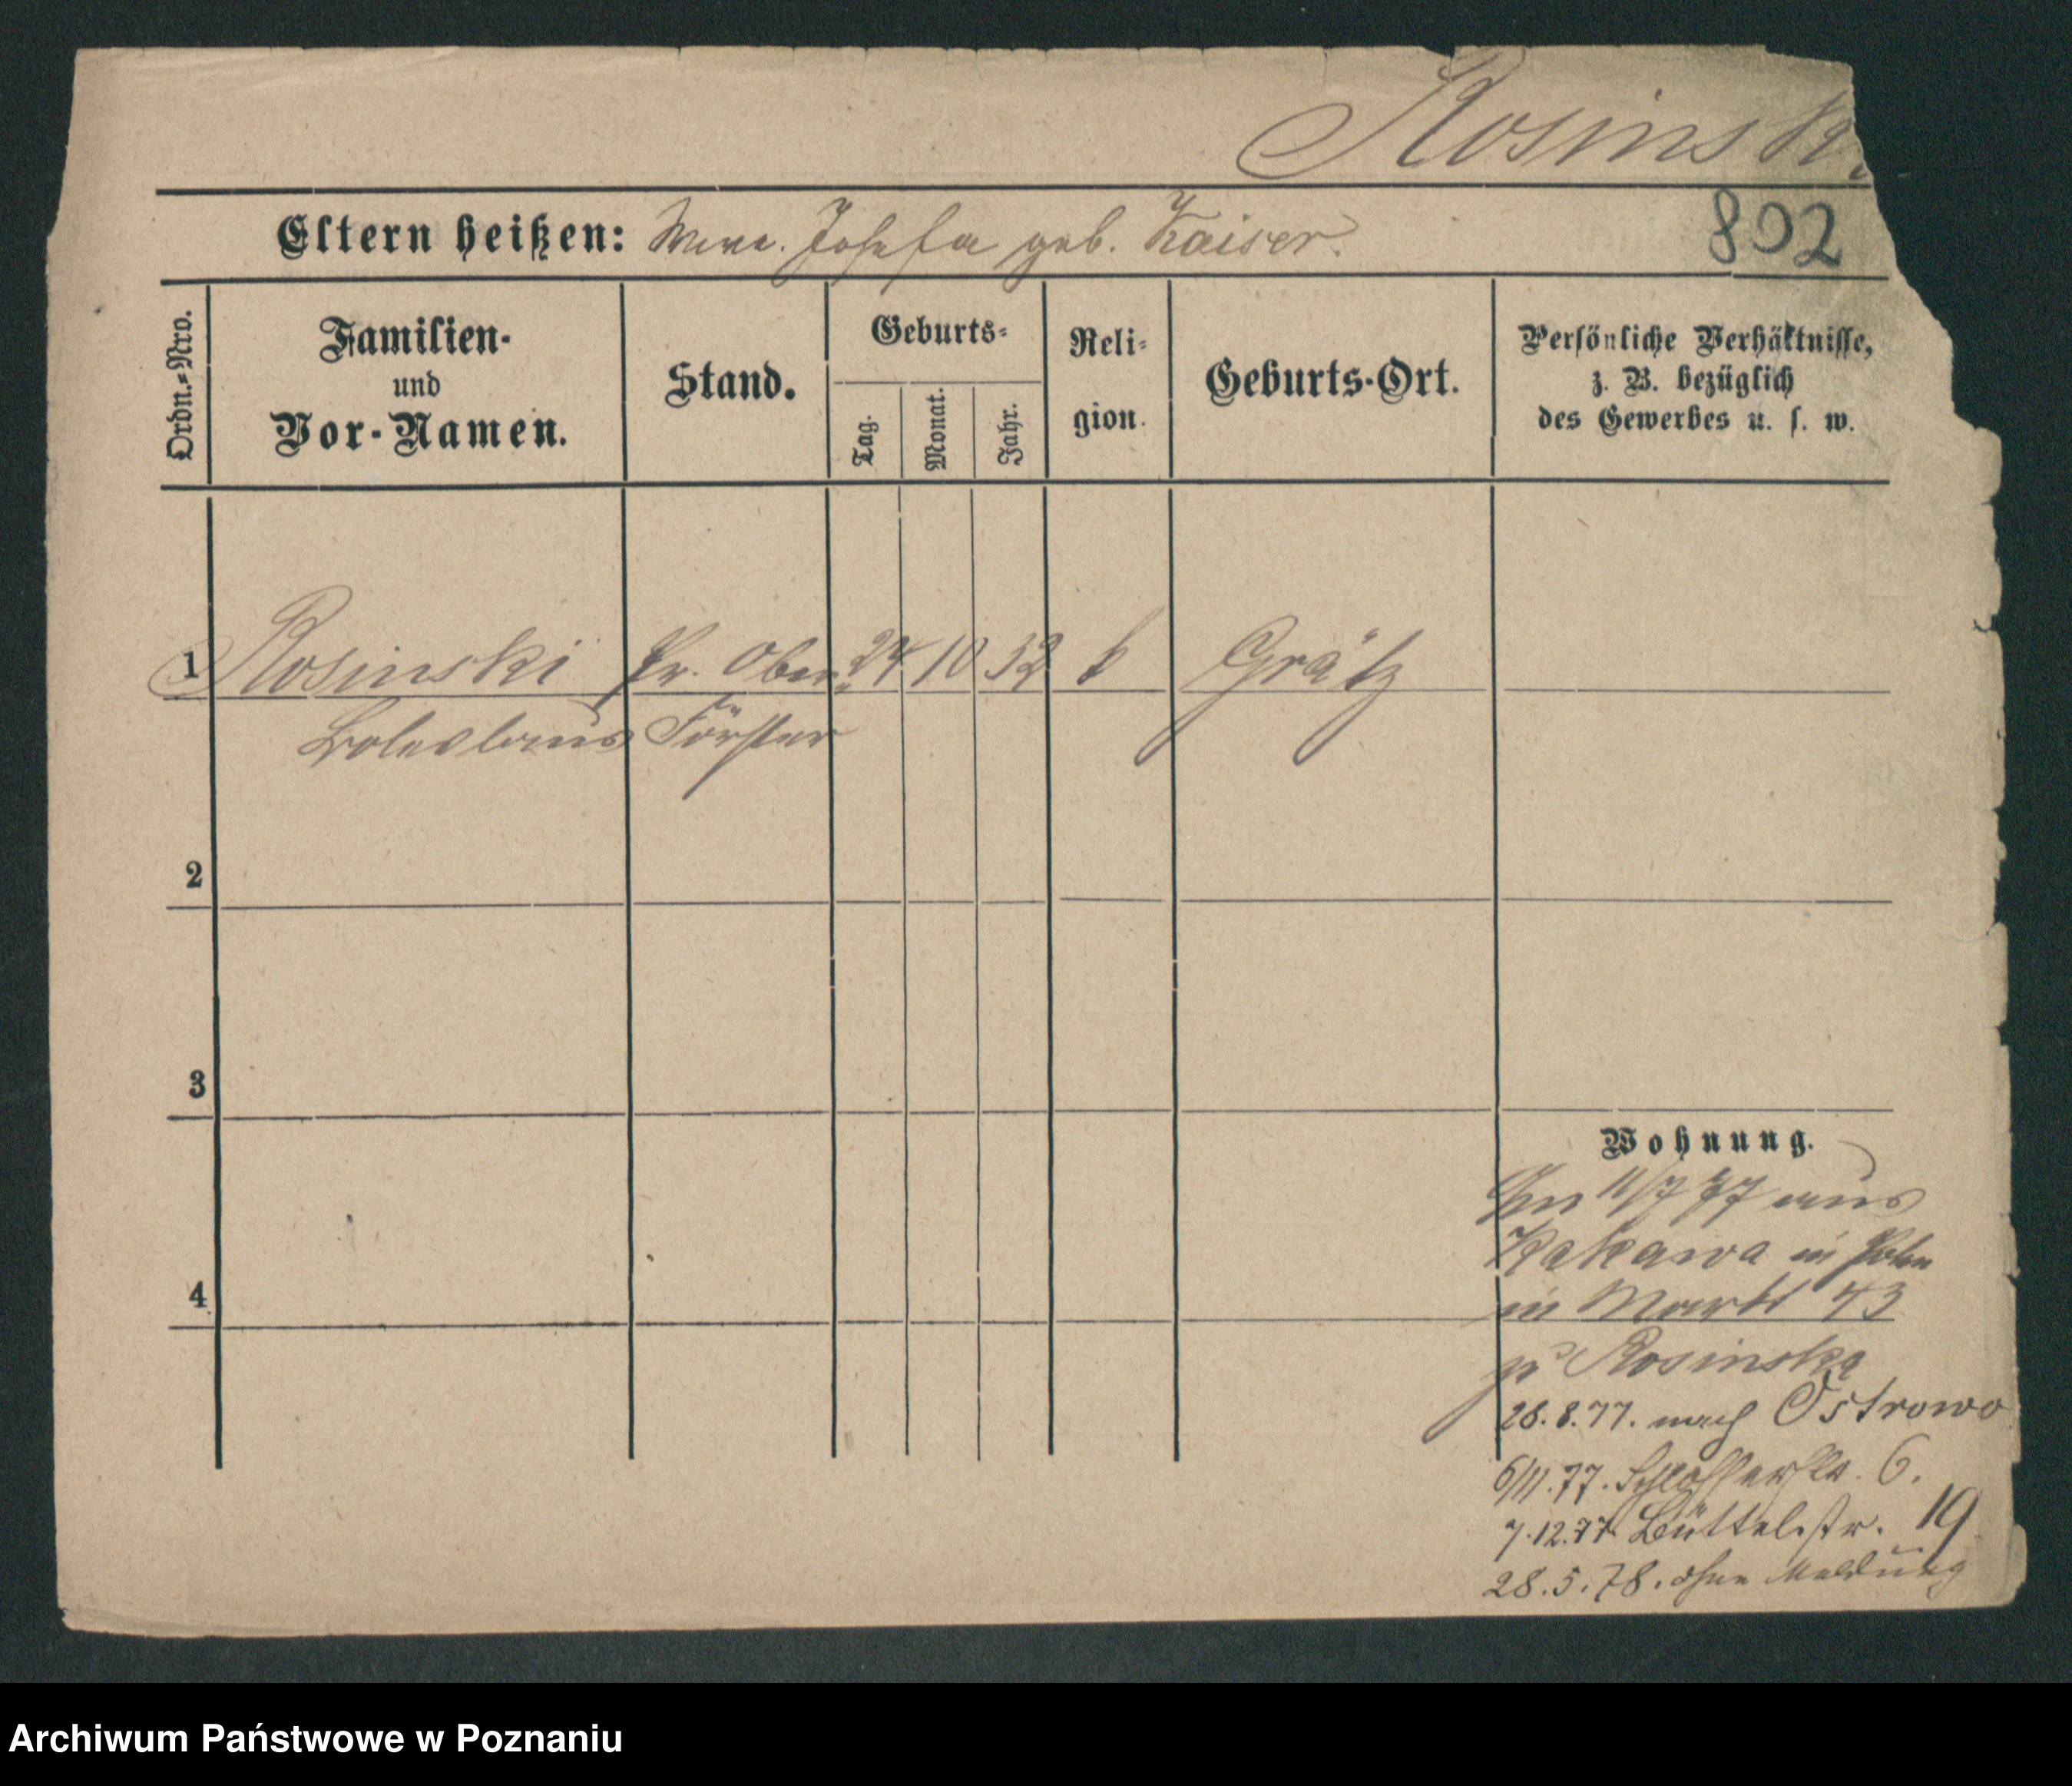 Rosinski
Eltern heißen: Wwe. Josefa geb. Kaiser.
802
Ordn.-Nro.
Familien-
und
Vor-Namen.
Stand.
Geburts-
Tag.
Monat.
Jahr.
Reli-
gion.
Geburts-Ort.
Persönliche Verhältnisse,
z. B. bezüglich
des Gewerbes u. s. w.
1 Rosinski Pr. Ober- 24 10 32 k Grätz
Boleslaus Förster
2
3
Wohnung.
11/7 77 aus
Kakawa in Polen
4
in Markt 43
zu Rosinska
28.8.77. nach Ostrowo
6/11.77. Schlosserstr. 6.
7.12.77 Büttelstr. 19
28.5.78. ohne Meldung
Archiwum Państwowe w Poznaniu